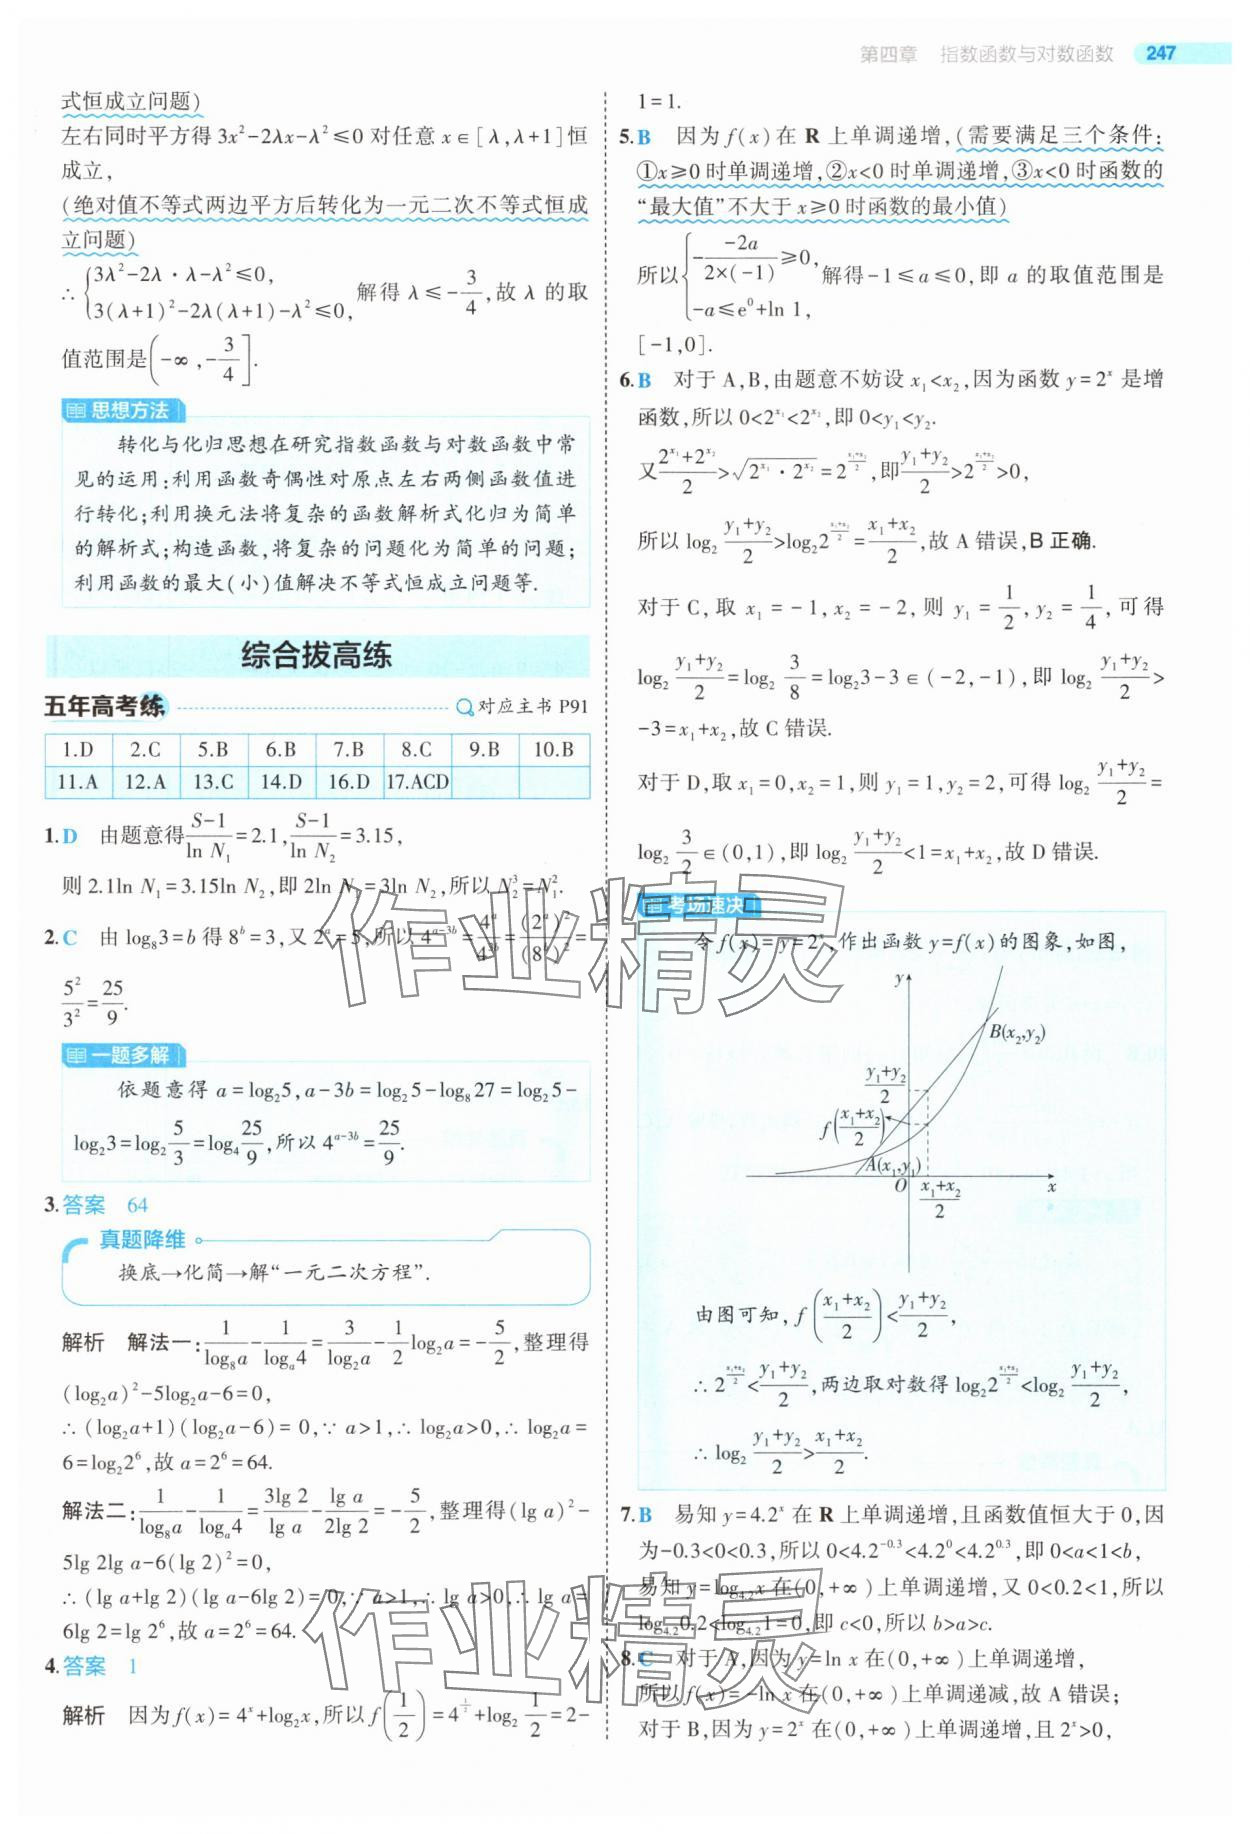 第四章 指数函数与对数函数 247
式恒成立问题)
左右同时平方得 3x²-2λx-λ²≤0 对任意 x∈[λ,λ+1]恒
成立,
(绝对值不等式两边平方后转化为一元二次不等式恒成
立问题)
∴ {3λ²-2λ·λ-λ²≤0,
3(λ+1)²-2λ(λ+1)-λ²≤0, 解得 λ≤-3/4,故 λ 的取
值范围是(-∞,-3/4].
思想方法
转化与化归思想在研究指数函数与对数函数中常
见的运用:利用函数奇偶性对原点左右两侧函数值进
行转化;利用换元法将复杂的函数解析式化归为简单
的解析式;构造函数,将复杂的问题化为简单的问题;
利用函数的最大(小)值解决不等式恒成立问题等.
综合拔高练
五年高考练 对应主书 P91
1.D 2.C 5.B 6.B 7.B 8.C 9.B 10.B
11.A 12.A 13.C 14.D 16.D 17.ACD
1.D 由题意得(S-1)/(ln N₁)=2.1,(S-1)/(ln N₂)=3.15,
则 2.1ln N₁=3.15ln N₂,即 2ln N₁=3ln N₂,所以 N₂³=N₁².
2.C 由 log₈3=b 得 8^b=3,又 2^a=5,所以 4^(a-3b)=4^a/4^(3b)=(2^a)²/(8^b)²=
5²/3²=25/9.
一题多解
依题意得 a=log₂5,a-3b=log₂5-log₈27=log₂5-
log₂3=log₂ 5/3=log₄ 25/9,所以 4^(a-3b)=25/9.
3.答案 64
真题降维
换底→化简→解“一元二次方程”.
解析 解法一:1/(log₈a)-1/(logₐ4)=3/(log₂a)-1/2 log₂a=-5/2,整理得
(log₂a)²-5log₂a-6=0,
∴(log₂a+1)(log₂a-6)=0,∵a>1,∴log₂a>0,∴log₂a=
6=log₂2⁶,故 a=2⁶=64.
解法二:1/(log₈a)-1/(logₐ4)=(3lg 2)/(lg a)-(lg a)/(2lg 2)=-5/2,整理得(lg a)²-
5lg 2lg a-6(lg 2)²=0,
∴(lg a+lg 2)(lg a-6lg 2)=0,∵a>1,∴lg a>0,∴lg a=
6lg 2=lg 2⁶,故 a=2⁶=64.
4.答案 1
解析 因为 f(x)=4^x+log₂x,所以 f(1/2)=4^(1/2)+log₂ 1/2=2-
1=1.
5.B 因为 f(x)在 R 上单调递增,(需要满足三个条件:
①x≥0 时单调递增,②x<0 时单调递增,③x<0 时函数的
“最大值”不大于 x≥0 时函数的最小值)
所以{-(-2a)/(2×(-1))≥0,
-a≤e⁰+ln 1, 解得-1≤a≤0,即 a 的取值范围是
[-1,0].
6.B 对于 A,B,由题意不妨设 x₁<x₂,因为函数 y=2^x 是增
函数,所以 0<2^(x₁)<2^(x₂),即 0<y₁<y₂.
又(2^(x₁)+2^(x₂))/2>√(2^(x₁)·2^(x₂))=2^((x₁+x₂)/2),即(y₁+y₂)/2>2^((x₁+x₂)/2)>0,
所以 log₂ (y₁+y₂)/2>log₂2^((x₁+x₂)/2)=(x₁+x₂)/2,故 A 错误,B 正确.
对于 C,取 x₁=-1,x₂=-2,则 y₁=1/2,y₂=1/4,可得
log₂ (y₁+y₂)/2=log₂ 3/8=log₂3-3∈(-2,-1),即 log₂ (y₁+y₂)/2>
-3=x₁+x₂,故 C 错误.
对于 D,取 x₁=0,x₂=1,则 y₁=1,y₂=2,可得 log₂ (y₁+y₂)/2=
log₂ 3/2∈(0,1),即 log₂ (y₁+y₂)/2<1=x₁+x₂,故 D 错误.
考场速决
令 f(x)=y=2^x,作出函数 y=f(x)的图象,如图,
y
B(x₂,y₂)
(y₁+y₂)/2
f((x₁+x₂)/2)
A(x₁,y₁)
O (x₁+x₂)/2 x
由图可知,f((x₁+x₂)/2)<(y₁+y₂)/2,
∴2^((x₁+x₂)/2)<(y₁+y₂)/2,两边取对数得 log₂2^((x₁+x₂)/2)<log₂ (y₁+y₂)/2,
∴log₂ (y₁+y₂)/2>(x₁+x₂)/2.
7.B 易知 y=4.2^x 在 R 上单调递增,且函数值恒大于 0,因
为-0.3<0<0.3,所以 0<4.2^(-0.3)<4.2⁰<4.2^(0.3),即 0<a<1<b,
易知 y=log₄.₂x 在(0,+∞)上单调递增,又 0<0.2<1,所以
log₄.₂0.2<log₄.₂1=0,即 c<0,所以 b>a>c.
8.C 对于 A,因为 y=ln x 在(0,+∞)上单调递增,
所以 f(x)=-ln x 在(0,+∞)上单调递减,故 A 错误;
对于 B,因为 y=2^x 在(0,+∞)上单调递增,且 2^x>0,
作业精灵
作业精灵